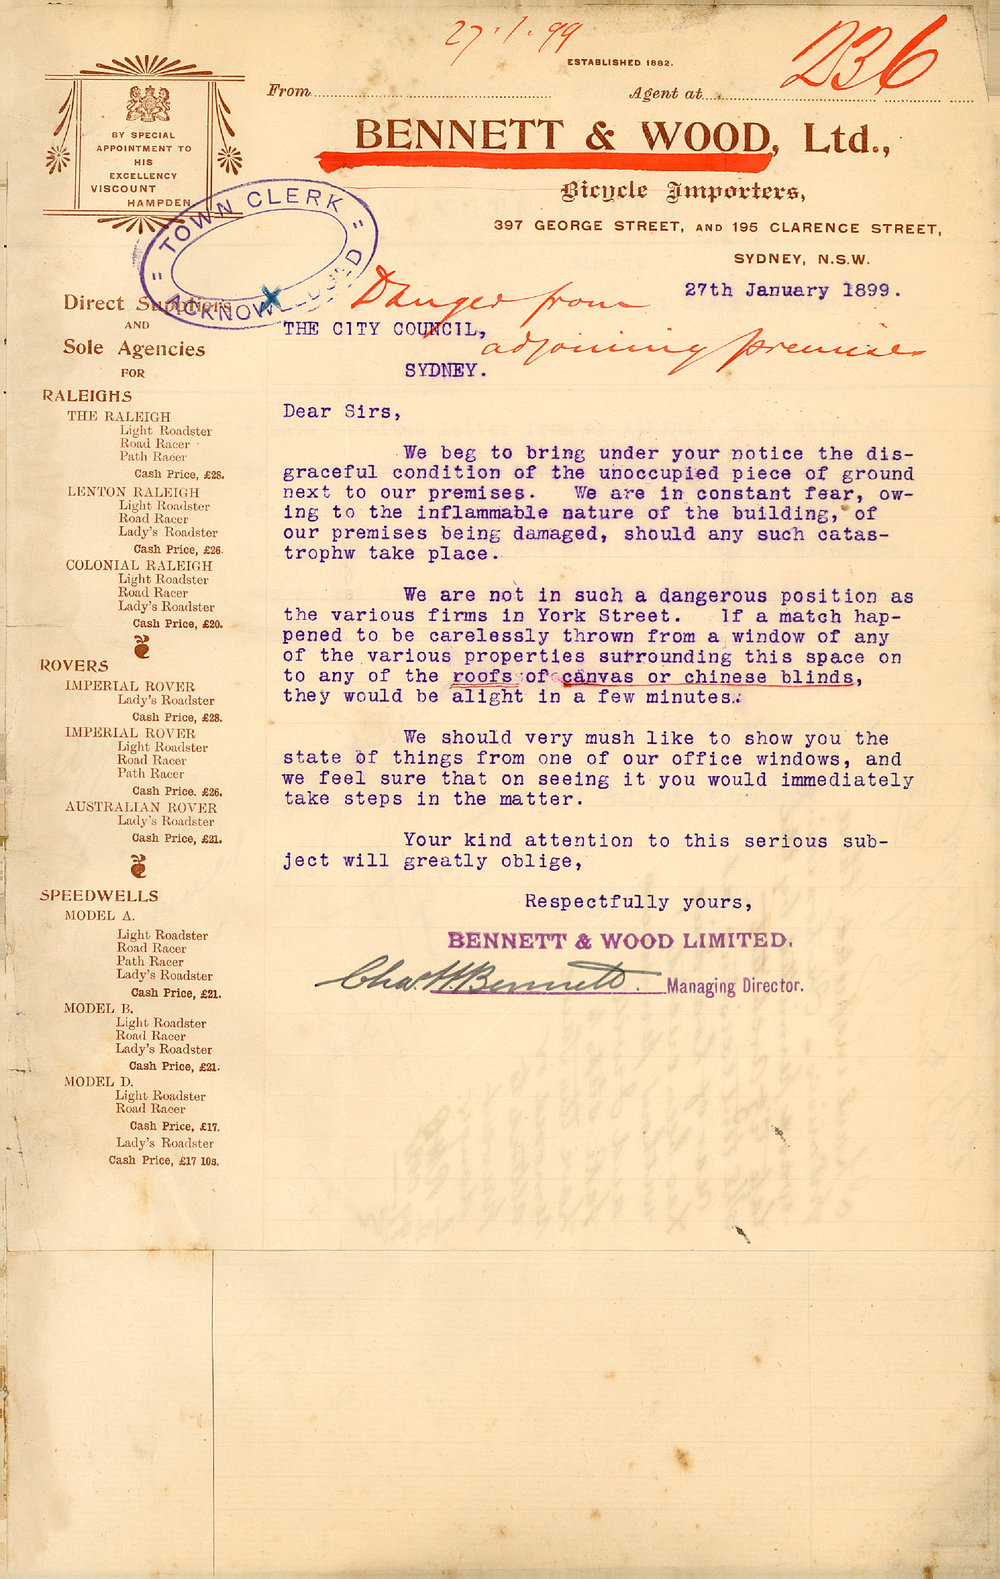 27.1.99
236
ESTABLISHED 1882.
From
Agent at
BENNETT & WOOD, Ltd.,
Bicycle Importers,
397 GEORGE STREET, AND 195 CLARENCE STREET,
SYDNEY, N.S.W.
BY SPECIAL
APPOINTMENT TO
HIS
EXCELLENCY
VISCOUNT
HAMPDEN
TOWN CLERK
ACKNOWLEDGED
Direct Suppliers
AND
Sole Agencies
FOR
RALEIGHS
THE RALEIGH
Light Roadster
Road Racer
Path Racer
Cash Price, £28.
LENTON RALEIGH
Light Roadster
Road Racer
Lady's Roadster
Cash Price, £26.
COLONIAL RALEIGH
Light Roadster
Road Racer
Lady's Roadster
Cash Price, £20.
ROVERS
IMPERIAL ROVER
Lady's Roadster
Cash Price, £28.
IMPERIAL ROVER
Light Roadster
Road Racer
Path Racer
Cash Price. £26.
AUSTRALIAN ROVER
Lady's Roadster
Cash Price, £21.
SPEEDWELLS
MODEL A.
Light Roadster
Road Racer
Path Racer
Lady's Roadster
Cash Price, £21.
MODEL B.
Light Roadster
Road Racer
Lady's Roadster
Cash Price, £21.
MODEL D.
Light Roadster
Road Racer
Cash Price, £17.
Lady's Roadster
Cash Price, £17 10s.
27th January 1899.
Danger from
adjoining premises
THE CITY COUNCIL,
SYDNEY.
Dear Sirs,
We beg to bring under your notice the dis-
graceful condition of the unoccupied piece of ground
next to our premises. We are in constant fear, ow-
ing to the inflammable nature of the building, of
our premises being damaged, should any such catas-
trophw take place.
We are not in such a dangerous position as
the various firms in York Street. If a match hap-
pened to be carelessly thrown from a window of any
of the various properties surrounding this space on
to any of the roofs of canvas or chinese blinds,
they would be alight in a few minutes.
We should very mush like to show you the
state of things from one of our office windows, and
we feel sure that on seeing it you would immediately
take steps in the matter.
Your kind attention to this serious sub-
ject will greatly oblige,
Respectfully yours,
BENNETT & WOOD LIMITED.
Chas. H. Bennett. Managing Director.